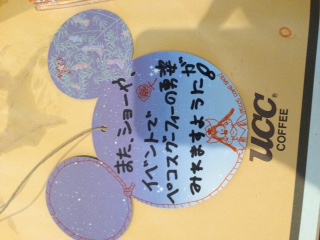 また、ショーや、
イベントで
ペコスグーフィーの勇姿が
みれますように8
UCC
COFFEE